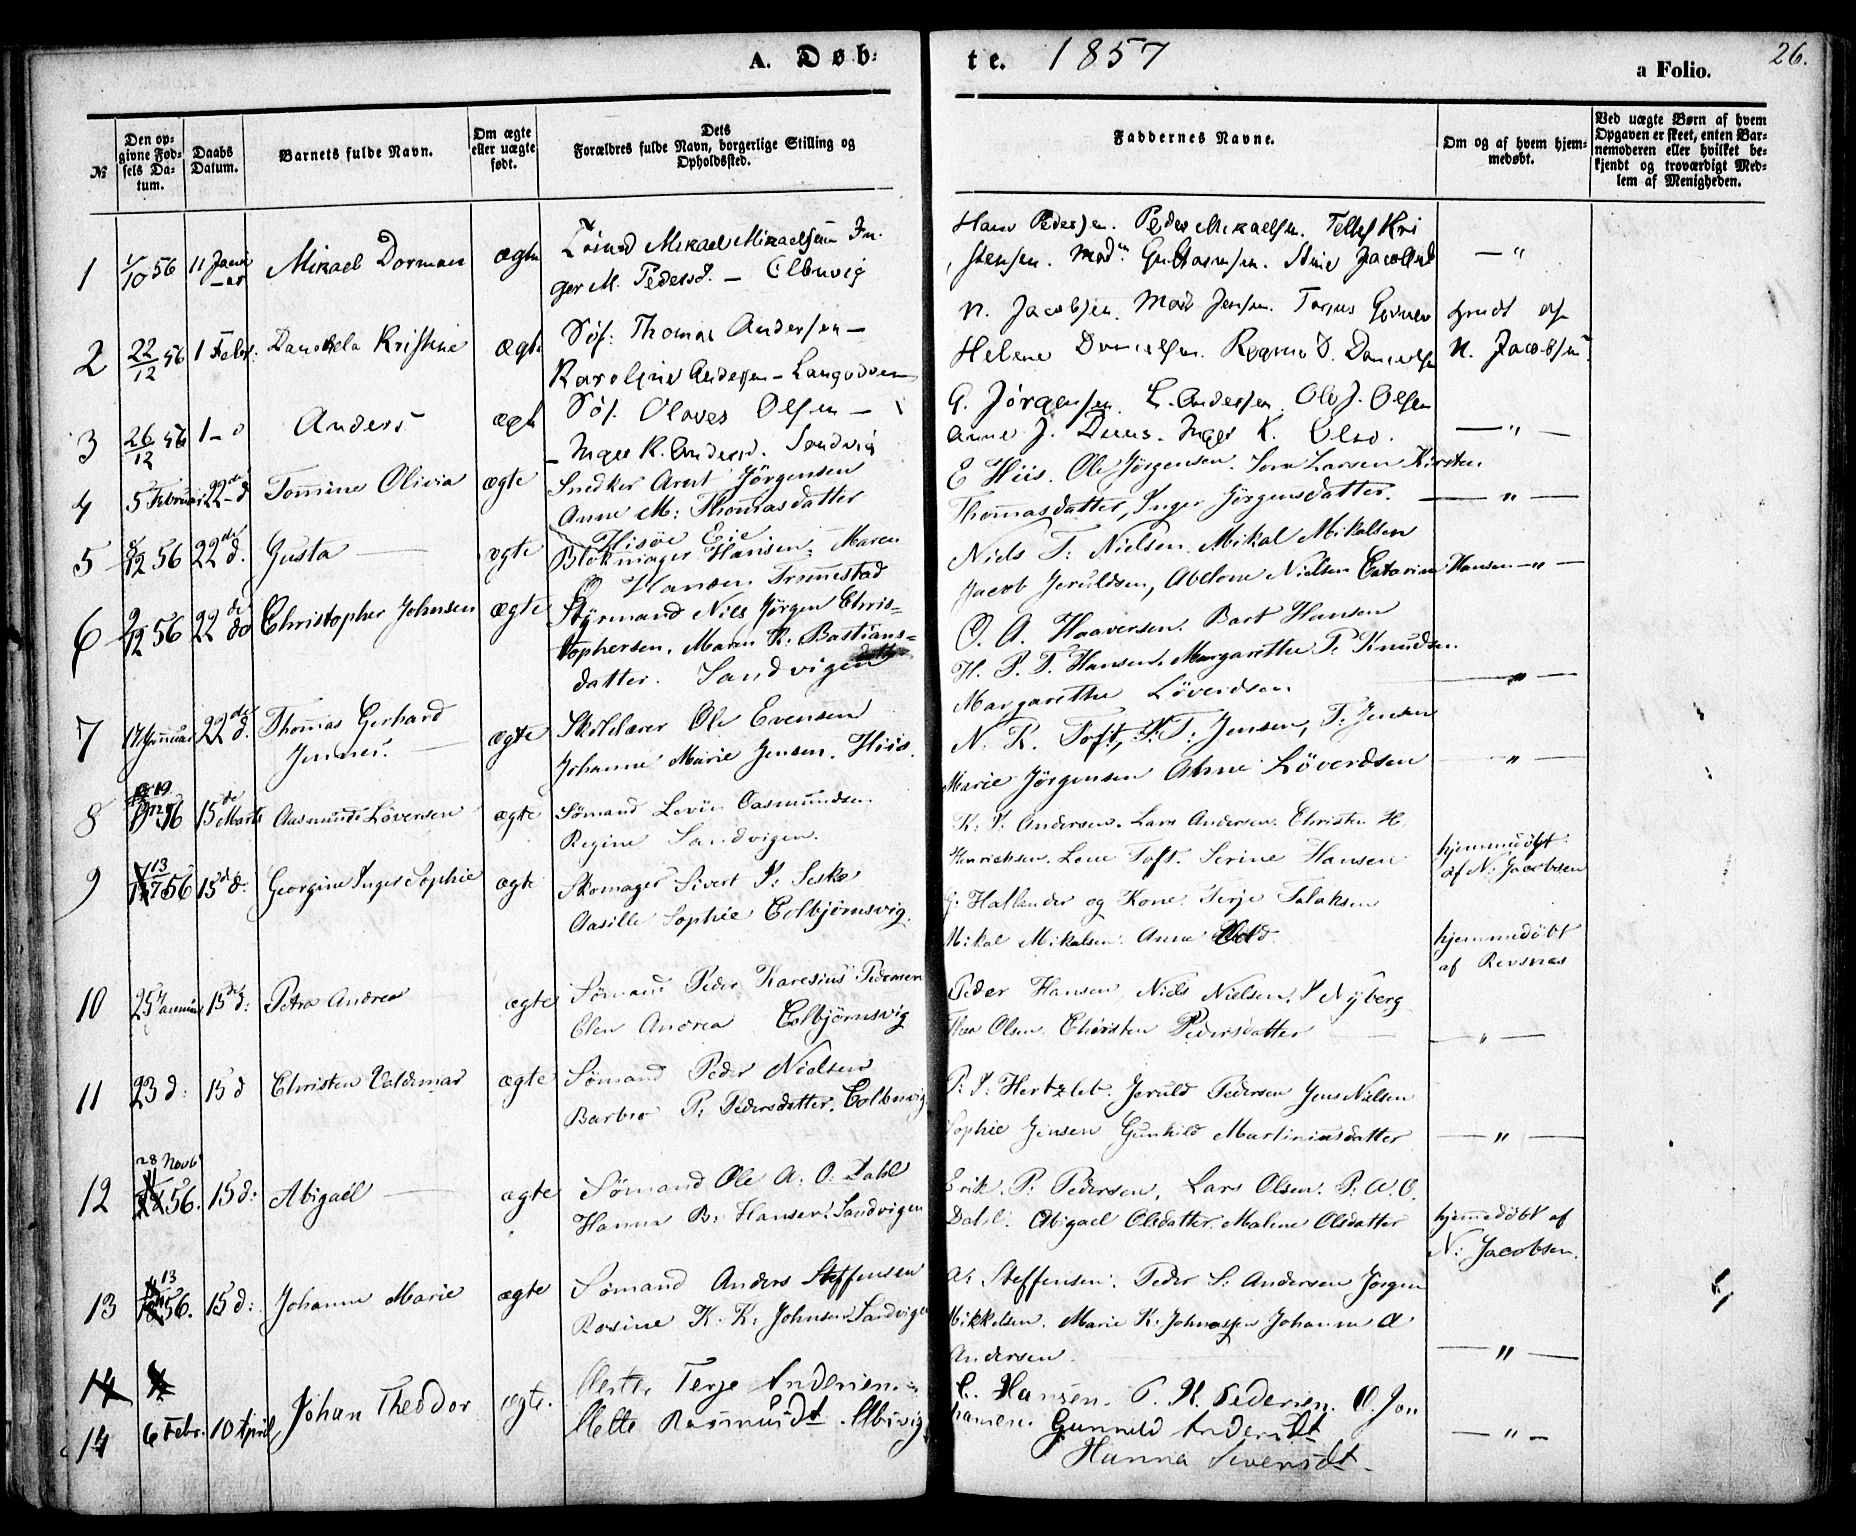 A. Døb-
te. 1857
26.
a Folio.
№
Den op-
givne Fød-
sels Da-
tum.
Daabs
Datum.
Barnets fulde Navn.
Om ægte
eller uægte
født.
Dets
Forældres fulde Navn, borgerlige Stilling og
Opholdssted.
Faddernes Navne.
Om og af hvem hjem-
medøbt.
Ved uægte Børn af hvem
Opgaven er skeet, enten Bar-
nemoderen eller hvilket be-
kjendt og troværdigt Med-
lem af Menigheden.
1 1/10 56 11 Januar Mikael Dorman ægte Mikael Mikaelsen In-
ger M. Pedersd. — Colbnvig
Hans Pedersen. Peder Mikaelsen. Tellef Kri
stensen. Mad. Gustavnsen. Stine Jacobsd — " —
2 22/12 56 1 Febr: Daniela Kristine ægte Søf: Thomas Andersen —
Karoline Andersen — Langodden
N. Jacobsen. Mad Jensen.
Helene Danielsen. D. Danielsen
hjmdt af
N. Jacobsen
3 26/12 56 1 — d Anders ægte Søf. Olaves Olsen —
Inger K. Andersd. Sandvig
G. Jörgensen. L. Andersen. Ole J. Olsen
Anne J. Duus. Inger K. Olsd. — " —
4 5 Februar 22de d Tommine Olivia ægte Snedker Arent Jörgensen
Anne M: Thomasdatter
Hisöe Eie
E Hiis. Ole Jörgensen. Larsen Kirsten
Thomasdatter, Inger Jörgensdatter. — " —
5 8/12 56 22de d. Gusta — ægte Blokmager Hansen, Maren
Hansen Trommestad
Niels T: Nielsen. Mikal Mikalsen
Jacob Jeruldsen, Abelone Nielsen Catarine Hansen — " —
6 9/12 56 22de do Christopher Johnsen ægte Styrmand Nils Jörgen Chris-
tophersen, Maren K: Bastians-
datter. Sandvigen
O. A. Haaversen. Bart Hansen
H. P. T. Hansen. Margarethe P. Knudsen.
Margarethe Löverdsen — " —
7 17 Januar 22de d. Thomas Gerhard
Jenner. — ægte Skolelærer Ole Evensen
Johanne Marie Jensen. Hiis.
N. R. Toft, Jensen, T: Jensen
Marie Jörgensen Anne Löverdsen — " —
8 15de Marts Aasmund Löversen ægte Sömand Lovie Aasmundsen
Regine Sandvigen.
K: S. Andersen. Lars Andersen. Christen H.
Henrichsen. Lene Toft. Serine Hansen
hjemmedöbt
af N: Jacobsen
9 13 56 15de d: Georgine Inger Sophie ægte Skomager Sivert
Aasille Sophie Colbjörnsvig
G: Hallander og Kone Terje Salaksen
Mikal Mikalsen. Anne
hjemmedöbt
af Revsnæs
10 25 Januar 15de d: Petra Andrea ægte Sömand Peder Karesius Pedersen
Elen Andrea Colbjörnsvig
Peder Hansen, Niels Nielsen, Nyberg
Thea Olsen. Christen Pedersdatter — " —
11 23 d: 15 d Christen Valdemar ægte Sömand Peder Nielsen
Barbro P: Pedersdatter. Colbnvig
P: S: Hertzleb. Jeruld Pedersen Jens Nielsen
Sophie Jensen Gunhild Martiniusdatter — " —
12 28 Novb 56. 15 d: Abigaël — ægte Sömand Ole A. O. Dahl
Hanna B: Hansen Sandvigen
Erik. P: Pedersen, Lars Olsen. P. A. O.
Dahl. Abigael Olsdatter. Malene Olsdatter
hjemmedöbt af
N: Jacobsen.
13 13 56. 15 d: Johanne Marie ægte Sömand Anders Steffensen
Rosine K. K. Johnsen Sandvigen
A: Steffensen. Peder S: Andersen Jörgen
Mikkelsen. Marie K: Johnassen Johanne A
Andersen — " —
14
14 6 Febr. 10 April Johan Theodor ægte. Terje Andersen
Mette Rasmusdt.
C. Hansen. P. K. Pedersen. O. Jo
hansen. Gunnild Andersdt
Hanna Siversdt. — " —